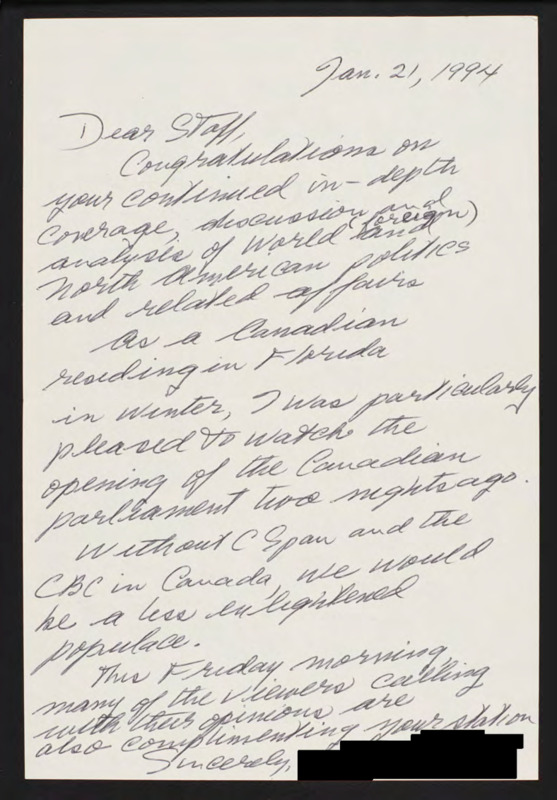 Jan. 21, 1994
Dear Staff,
Congratulations on
your continued in-depth
coverage, discussion and
analysis of World (foreign) and
North American politics
and related affairs
As a Canadian
residing in Florida
in winter, I was particularly
pleased to watch the
opening of the Canadian
parliament two nights ago.
Without C Span and the
CBC in Canada, we would
be a less enlightened
populace.
This Friday morning,
many of the viewers calling
with their opinions are
also complimenting your station
Sincerely,